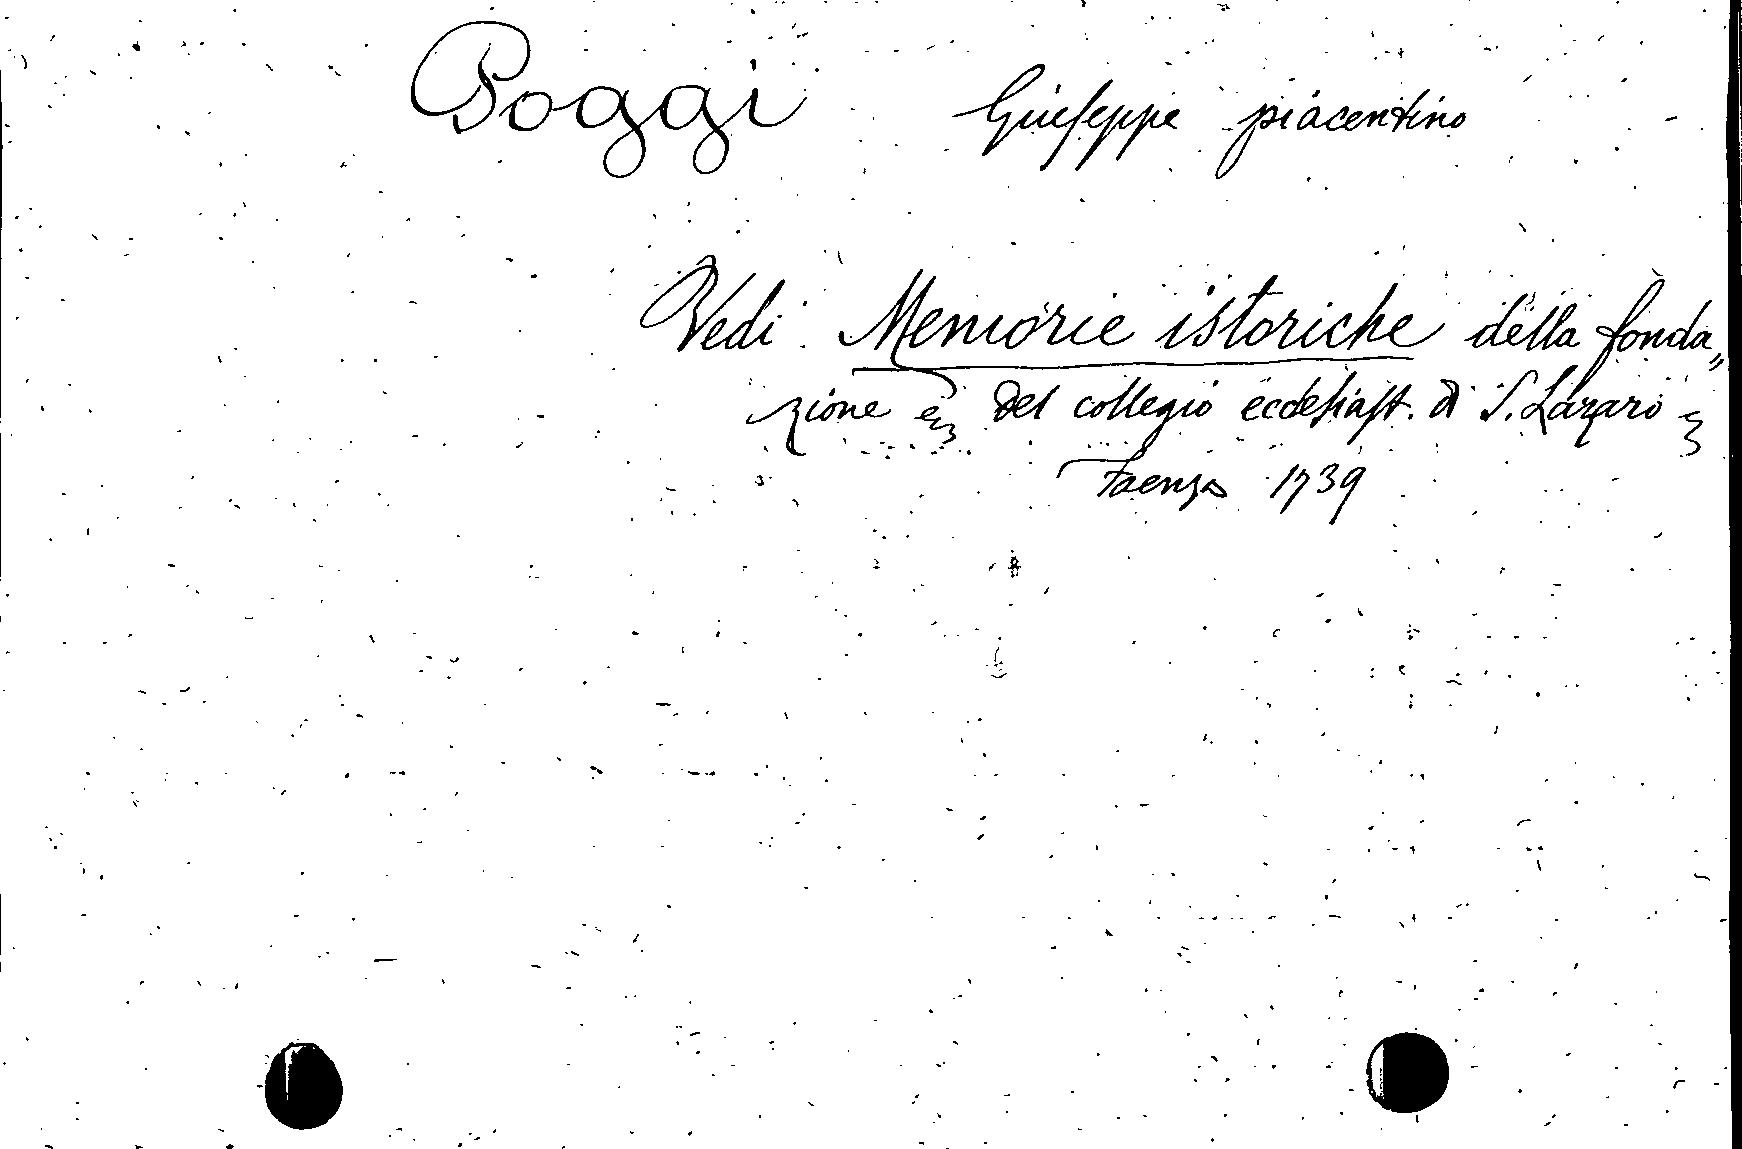 Poggi Giuseppe piacentino
Vedi: Memorie istoriche della fonda„
zione &c. del collegio ecclesiast. di S. Lazaro &c.
Faenza 1739